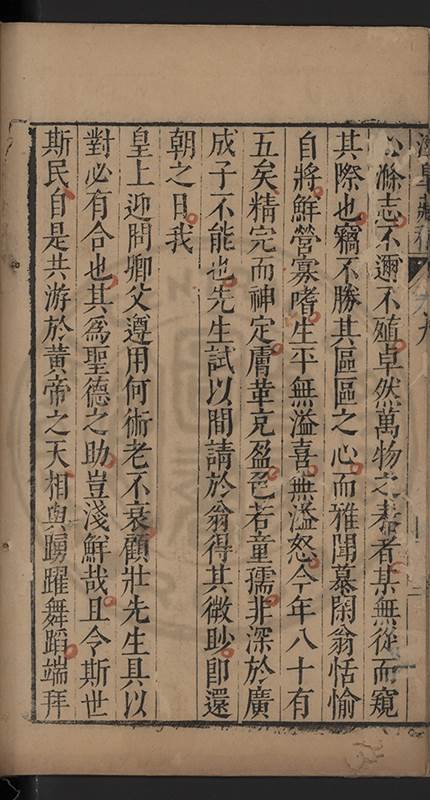 滌志不邇不殖卓然萬物之表者某無從而窺
其際也竊不勝其區區之心而雅聞慕閑翁恬愉
自將鮮營寡嗜生平無溢喜無溢怒今年八十有
五矣精完而神定膚革充盈色若童孺非深於廣
成子不能也先生試以間請於翁得其微眇即還
朝之日我
皇上迎問卿父遵用何術老不衰顧壯先生具以
對必有合也其為聖德之助豈淺鮮哉且令斯世
斯民自是共游於黃帝之天相與踴躍舞蹈端拜